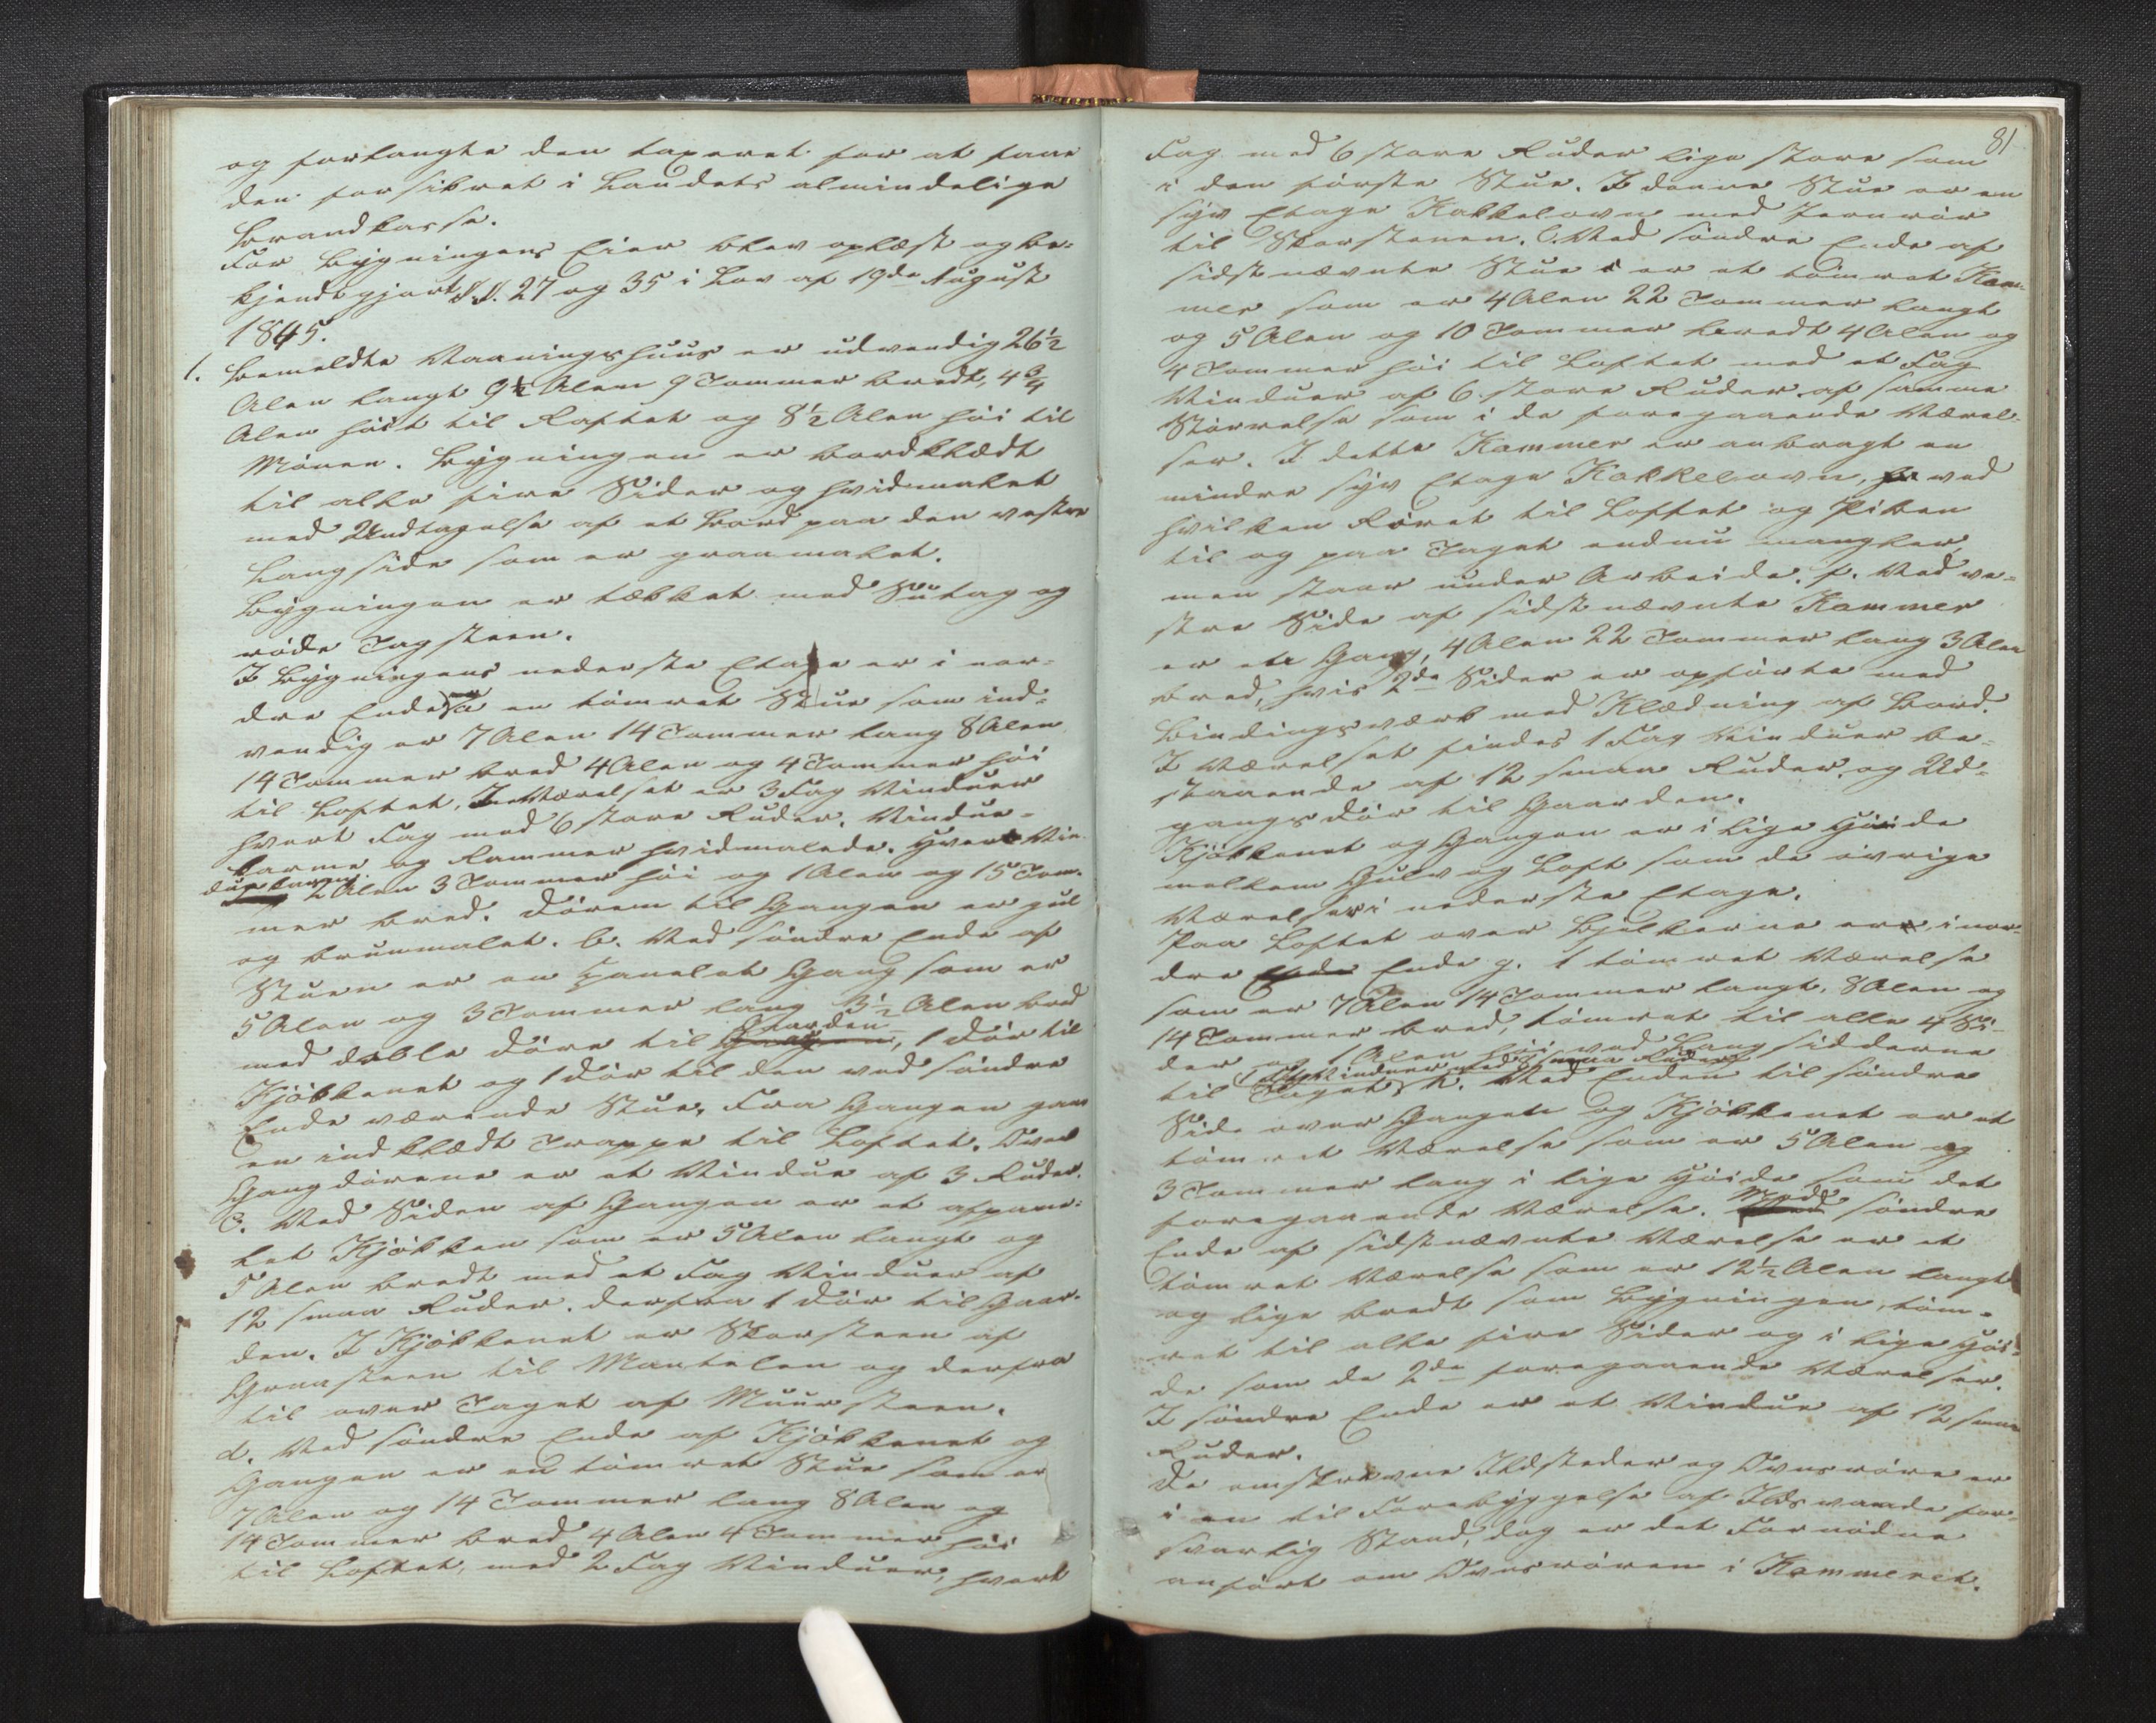 og forlangte den taxeret for at faae
den forsikret i Landets almindelige
Brandkasse.
For Bygningens Eier blev oplæst og be-
kjendtgjort §.§. 27 og 35 i Lov af 19de August
1845.
1. Bemeldte Vaaningshuus er udvendig 26½
Alen langt 9½ Alen 9 Tommer bredt, 4¾
Alen høit til Raftet og 8½ Alen høi til
Mønen. Bygningen er bordklædt
til alle fire Sider og hvidmalet
med Undtagelse af et Bord paa den vestre
Langside som er graamalet.
Bygningen er tækket med Sutag og
røde Tagsteen.
I Bygningens nederste Etage er i nor-
dre Ende a en tømret Stue som ind-
vendig er 7 Alen 14 Tommer lang 8 Alen
14 Tommer bred 4 Alen og 4 Tommer høi
til Loftet, I Værelset er 3 Fag Vinduer
hvert Fag med 6 store Ruder. Vindue-
karme og Rammer hvidmalede. Hver Vin-
duekarm 2 Alen 3 Tommer høi og 1 Alen og 15 Tom-
mer bred. Døren til Gangen er gul
og brunmalet. b. Ved søndre Ende af
Stuen er en panelet Gang som er
5 Alen og 3 Tommer lang 3½ Alen bred
med doble Døre til Gaarden, 1 Dør til
Kjøkkenet og 1 Dør til den ved søndre
Ende værende Stue. Fra Gangen gaar
en indklædt Trappe til Loftet. Over
Gangdørene er et Vindue af 3 Ruder.
c. Ved Siden af Gangen er et afpane-
let Kjøkken som er 5 Alen langt og
5 Alen bredt med et Fag Vinduer af
12 smaa Ruder. derfra 1 Dør til Gaar-
den. I Kjøkkenet er Skorsteen af
Graasteen til Mantelen og derfra
til over Taget af Muursteen.
d. Ved søndre Ende af Kjøkkenet og
Gangen er en tømret Stue som er
7 Alen og 14 Tommer lang 8 Alen og
14 Tommer bred 4 Alen 4 Tommer høi
til Loftet, med 2 Fag Vinduer, hvert
81
Fag med 6 store Ruder lige store som
i den første Stue. I denne Stue er en
syv Etage Kakkelovn med Jernrør
til Skorstenen. e. Ved søndre Ende af
sidstnævnte Stue er et tømret Kam-
mer som er 4 Alen 22 Tommer langt
og 5 Alen og 10 Tommer bredt 4 Alen og
4 Tommer høi til Loftet med et Fag
Vinduer af 6 store Ruder af samme
Størrelse som i de foregaaende Værel-
ser. I dette Kammer er anbragt en
mindre syv Etage Kakkelovn, ved
hvilken Røret til Loftet og Piben
til og paa Taget endnu mangler
men staar under Arbeide. f. Ved ve-
stre Side af sidstnævnte Kammer
er en Gang, 4 Alen 22 Tommer lang 3 Alen
bred, hvis 2de Sider er opførte med
Bindingsværk med Klædning af Bord.
I Værelset findes 1 Fag Vinduer be-
staaende af 12 smaa Ruder, og Ud-
gangsdør til Gaarden.
Kjøkkenet og Gangen er i lige Høide
mellem Gulv og Loft som de øvrige
Værelser i nederste Etage.
Paa Loftet over Bjelkerne er i nor-
dre Ende Ende g. 1 tømret Værelse
som er 7 Alen 14 Tommer langt, 8 Alen og
14 Tommer bred, tømret til alle 4 Si-
der og 1 Alen høi ved Langsidderne
1 Fag Vinduer med 8 smaa Ruder
til Taget, h. Ved Enden til søndre
Side over Gangen og Kjøkkenet er et
tømret Værelse som er 5 Alen og
3 Tommer lang i lige Høide som det
foregaaende Værelse. Mod søndre
Ende af sidstnævnte Værelse er et
tømret Værelse som er 12½ Alen langt
og lige bredt som Bygningen, tøm-
ret til alle fire Sider og i lige Høi-
de som de 2de foregaaende Værelser.
I søndre Ende er et Vindue af 12 smaa
Ruder.
De omskrevne Ildsteder og Ovnsrøre er
i en til Forebyggelse af Ildsvaade for-
svarlig Stand, dog er det Fornødne
anført om Ovnsrøren i Kammeret.